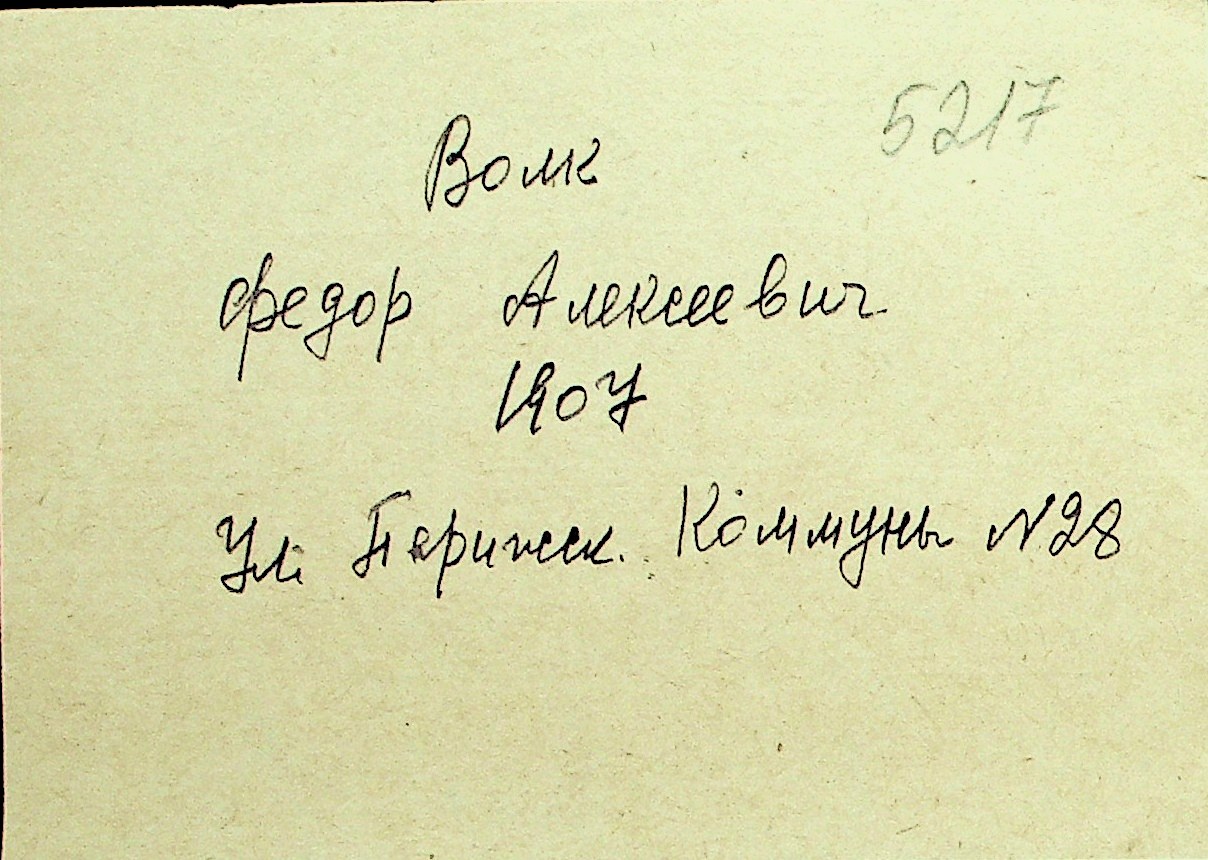 5217
Волк
Федор Алексеевич
1907
Ул. Парижск. Коммуны N28